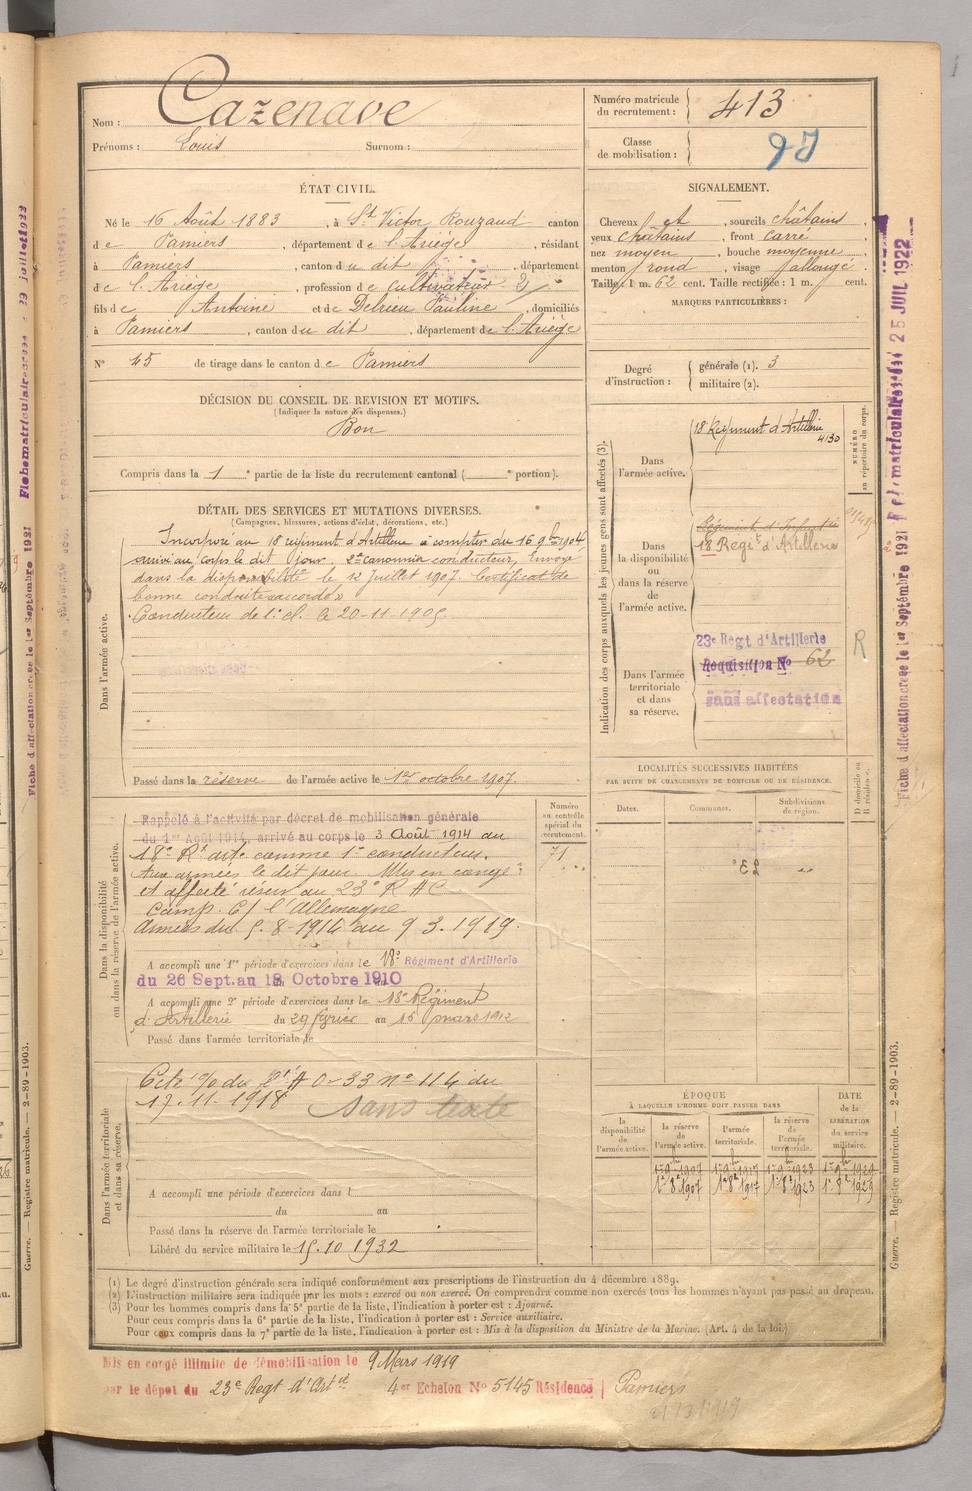 Nom : Cazenave
Prénoms : Louis Surnom :
Numéro matricule du recrutement : 413
Classe de mobilisation :
ÉTAT CIVIL.
Né le 16 Août 1883, à St Victor Rouzaud canton
de Pamiers, département de l'Ariège, résidant
à Pamiers, canton du dit, département
de l'Ariège, profession de cultivateur
fils de Antoine et de Delrieu Pauline, domiciliés
à Pamiers, canton du dit, département de l'Ariège
N° 45 de tirage dans le canton de Pamiers
SIGNALEMENT.
Cheveux et, sourcils châtains,
yeux châtains, front carré
nez moyen, bouche moyenne
menton rond, visage allongé.
Taille : 1 m. 62 cent. Taille rectifiée : 1 m. cent.
MARQUES PARTICULIÈRES :
Degré d'instruction :
générale (1). 3
militaire (2).
DÉCISION DU CONSEIL DE REVISION ET MOTIFS.
(Indiquer la nature des dispenses.)
Bon
Compris dans la 1e partie de la liste du recrutement cantonal ( e portion).
DÉTAIL DES SERVICES ET MUTATIONS DIVERSES.
(Campagnes, blessures, actions d'éclat, décorations, etc.)
Dans l'armée active.
Incorporé au 18 régiment d'Artillerie à compter du 16 9bre 1904
arrivé au corps le dit jour. 2e canonnier conducteur, Envoyé
dans la disponibilité le 12 juillet 1907. Certificat de
bonne conduite accordé
Conducteur de 1e cl. le 20-11-1905.
Passé dans la réserve de l'armée active le 1er octobre 1907.
Indication des corps auxquels les jeunes gens sont affectés (3).
NUMÉRO au répertoire du corps.
Dans l'armée active.
18 Régiment d'Artillerie
4130
Dans la disponibilité ou dans la réserve de l'armée active.
18 Regit d'Artillerie
Dans l'armée territoriale et dans sa réserve.
23e Regt d'Artillerie
Réquisition No 62
sans affectation
R
LOCALITÉS SUCCESSIVES HABITÉES
PAR SUITE DE CHANGEMENTS DE DOMICILE OU DE RÉSIDENCE.
Dates. Communes. Subdivisions de région. D domicile ou R résidence.
Dans la disponibilité ou dans la réserve de l'armée active.
Numéro au contrôle spécial du recrutement.
71
Rappelé à l'activité par décret de mobilisation générale
du 1er Août 1914, arrivé au corps le 3 Août 1914 au
18e Rt arte comme 1e conducteur.
Aux armées le dit jour. Mis en congé
et affecté réserv au 23e R A C
Camp. C/ l'Allemagne
Armées du 5-8-1914 au 9 3. 1919.
A accompli une 1re période d'exercices dans le 18e Régiment d'Artillerie
du 26 Sept. au 18 Octobre 1910
A accompli une 2e période d'exercices dans le 18e Régiment
d'Artillerie du 29 février au 15 mars 1912
Passé dans l'armée territoriale le
Dans l'armée territoriale et dans sa réserve.
n° 114 du
17.11.1918 sans texte
A accompli une période d'exercices dans l
du au
Passé dans la réserve de l'armée territoriale le
Libéré du service militaire le 15.10 1932
ÉPOQUE
À LAQUELLE L'HOMME DOIT PASSER DANS
la disponibilité de l'armée active.
la réserve de l'armée active.
l'armée territoriale.
la réserve de l'armée territoriale.
DATE de la LIBÉRATION du service militaire.
1er 9bre 1907 1er 9bre 1917 1er 9bre 1923 1er 9bre 1929
1er 8bre 1907 1er 8bre 1917 1er 8bre 1923 1er 8bre 1929
(1) Le degré d'instruction générale sera indiqué conformément aux prescriptions de l'instruction du 4 décembre 1889.
(2) L'instruction militaire sera indiquée par les mots : exercé ou non exercé. On comprendra comme non exercés tous les hommes n'ayant pas passé au drapeau.
(3) Pour les hommes compris dans la 5e partie de la liste, l'indication à porter est : Ajourné.
Pour ceux compris dans la 6e partie de la liste, l'indication à porter est : Service auxiliaire.
Pour ceux compris dans la 7e partie de la liste, l'indication à porter est : Mis à la disposition du Ministre de la Marine. (Art. 4 de la loi.)
Mis en congé illimité de démobilisation le 9 Mars 1919
par le dépot du 23e Regt d'Artie 4er Echelon No 5145 Résidence Pamiers
Guerre. — Registre matricule. — 2-89-1903.
Fiche d'affectation créée le 1er Septembre 1921 Fiche matriculaire créée 25 JUIL 1922
Guerre. — Registre matricule. — 2-89-1903.
Fiche d'affectation créée le 1er Septembre 1921 Fiche matriculaire créée 29 juillet 1922